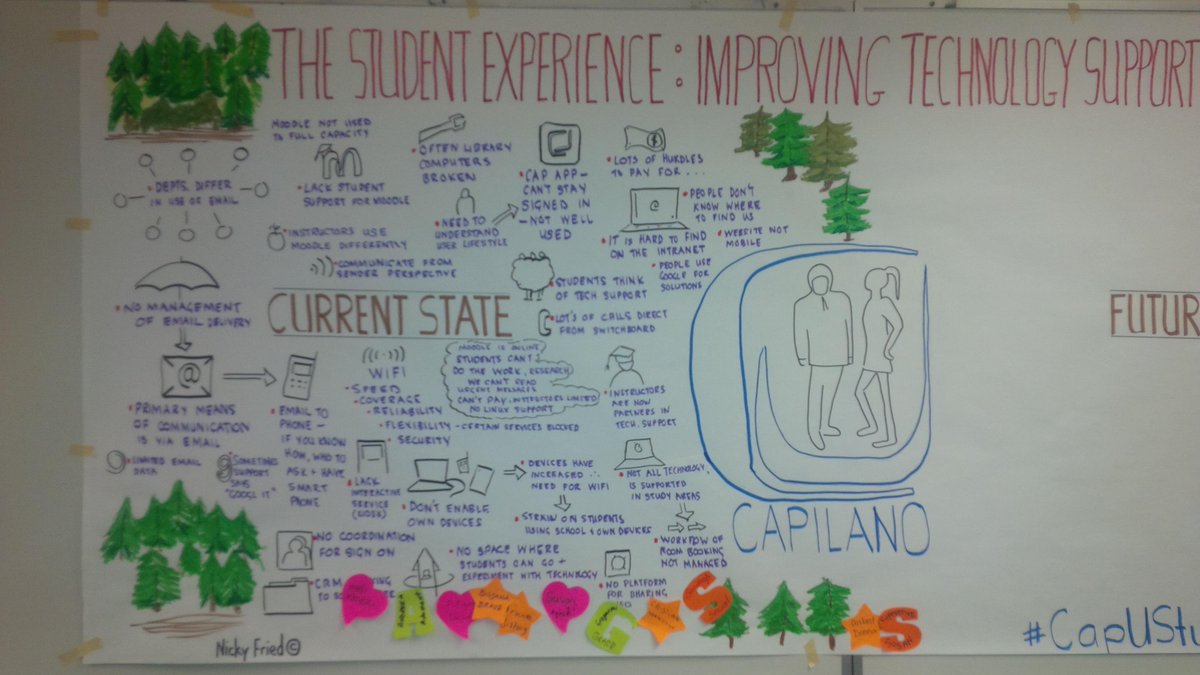 THE STUDENT EXPERIENCE: IMPROVING TECHNOLOGY SUPPORT
MOODLE NOT USED
TO FULL CAPACITY
DEPTS. DIFFER
IN USE OF EMAIL
LACK STUDENT
SUPPORT FOR MOODLE
INSTRUCTORS USE
MOODLE DIFFERENTLY
COMMUNICATE FROM
SENDER PERSPECTIVE
OFTEN LIBRARY
COMPUTERS
BROKEN
NEED TO
UNDERSTAND
USER LIFESTYLE
CAP APP-
CAN'T STAY
SIGNED IN
- NOT WELL
USED
LOTS OF HURDLES
TO PAY FOR...
PEOPLE DON'T
KNOW WHERE
TO FIND US
IT IS HARD TO FIND
ON THE INTRANET
WEBSITE NOT
MOBILE
PEOPLE USE
GOOGLE FOR
SOLUTIONS
STUDENTS THINK
OF TECH SUPPORT
LOT'S OF CALLS DIRECT
FROM SWITCHBOARD
NO MANAGEMENT
OF EMAIL DELIVERY
CURRENT STATE
FUTUR
@
PRIMARY MEANS
OF COMMUNICATION
IS VIA EMAIL
LIMITED EMAIL
DATA
EMAIL TO
PHONE -
IF YOU KNOW
HOW, WHO TO
ASK + HAVE
SMART
PHONE
SOMETIMES
SUPPORT
SAYS
"GOOGL IT"
WIFI
- SPEED
- COVERAGE
- RELIABILITY
- FLEXIBILITY - CERTAIN SERVICES BLOCKED
- SECURITY
MOODLE IS ONLINE
STUDENTS CAN'T
DO THE WORK, RESEARCH
WE CAN'T READ
URGENT MESSAGES
CAN'T PAY. INSTRUCTORS LIMITED
NO LINUX SUPPORT
INSTRUCTORS
ARE NOW
PARTNERS IN
TECH. SUPPORT
LACK
INTERACTIVE
SERVICE
(KIOSK)
DON'T ENABLE
OWN DEVICES
DEVICES HAVE
INCREASED ∴
NEED FOR WIFI
NOT ALL TECHNOLOGY
IS SUPPORTED
IN STUDY AREAS
STRAIN ON STUDENTS
USING SCHOOL & OWN DEVICES
WORKFLOW OF
ROOM BOOKING
NOT MANAGED
NO COORDINATION
FOR SIGN ON
NO SPACE WHERE
STUDENTS CAN GO +
EXPERIMENT WITH TECHNOLOGY
NO PLATFORM
FOR SHARING
CRM
CAPILANO
A
G
S
S
#CapUStu
Nicky Fried ©